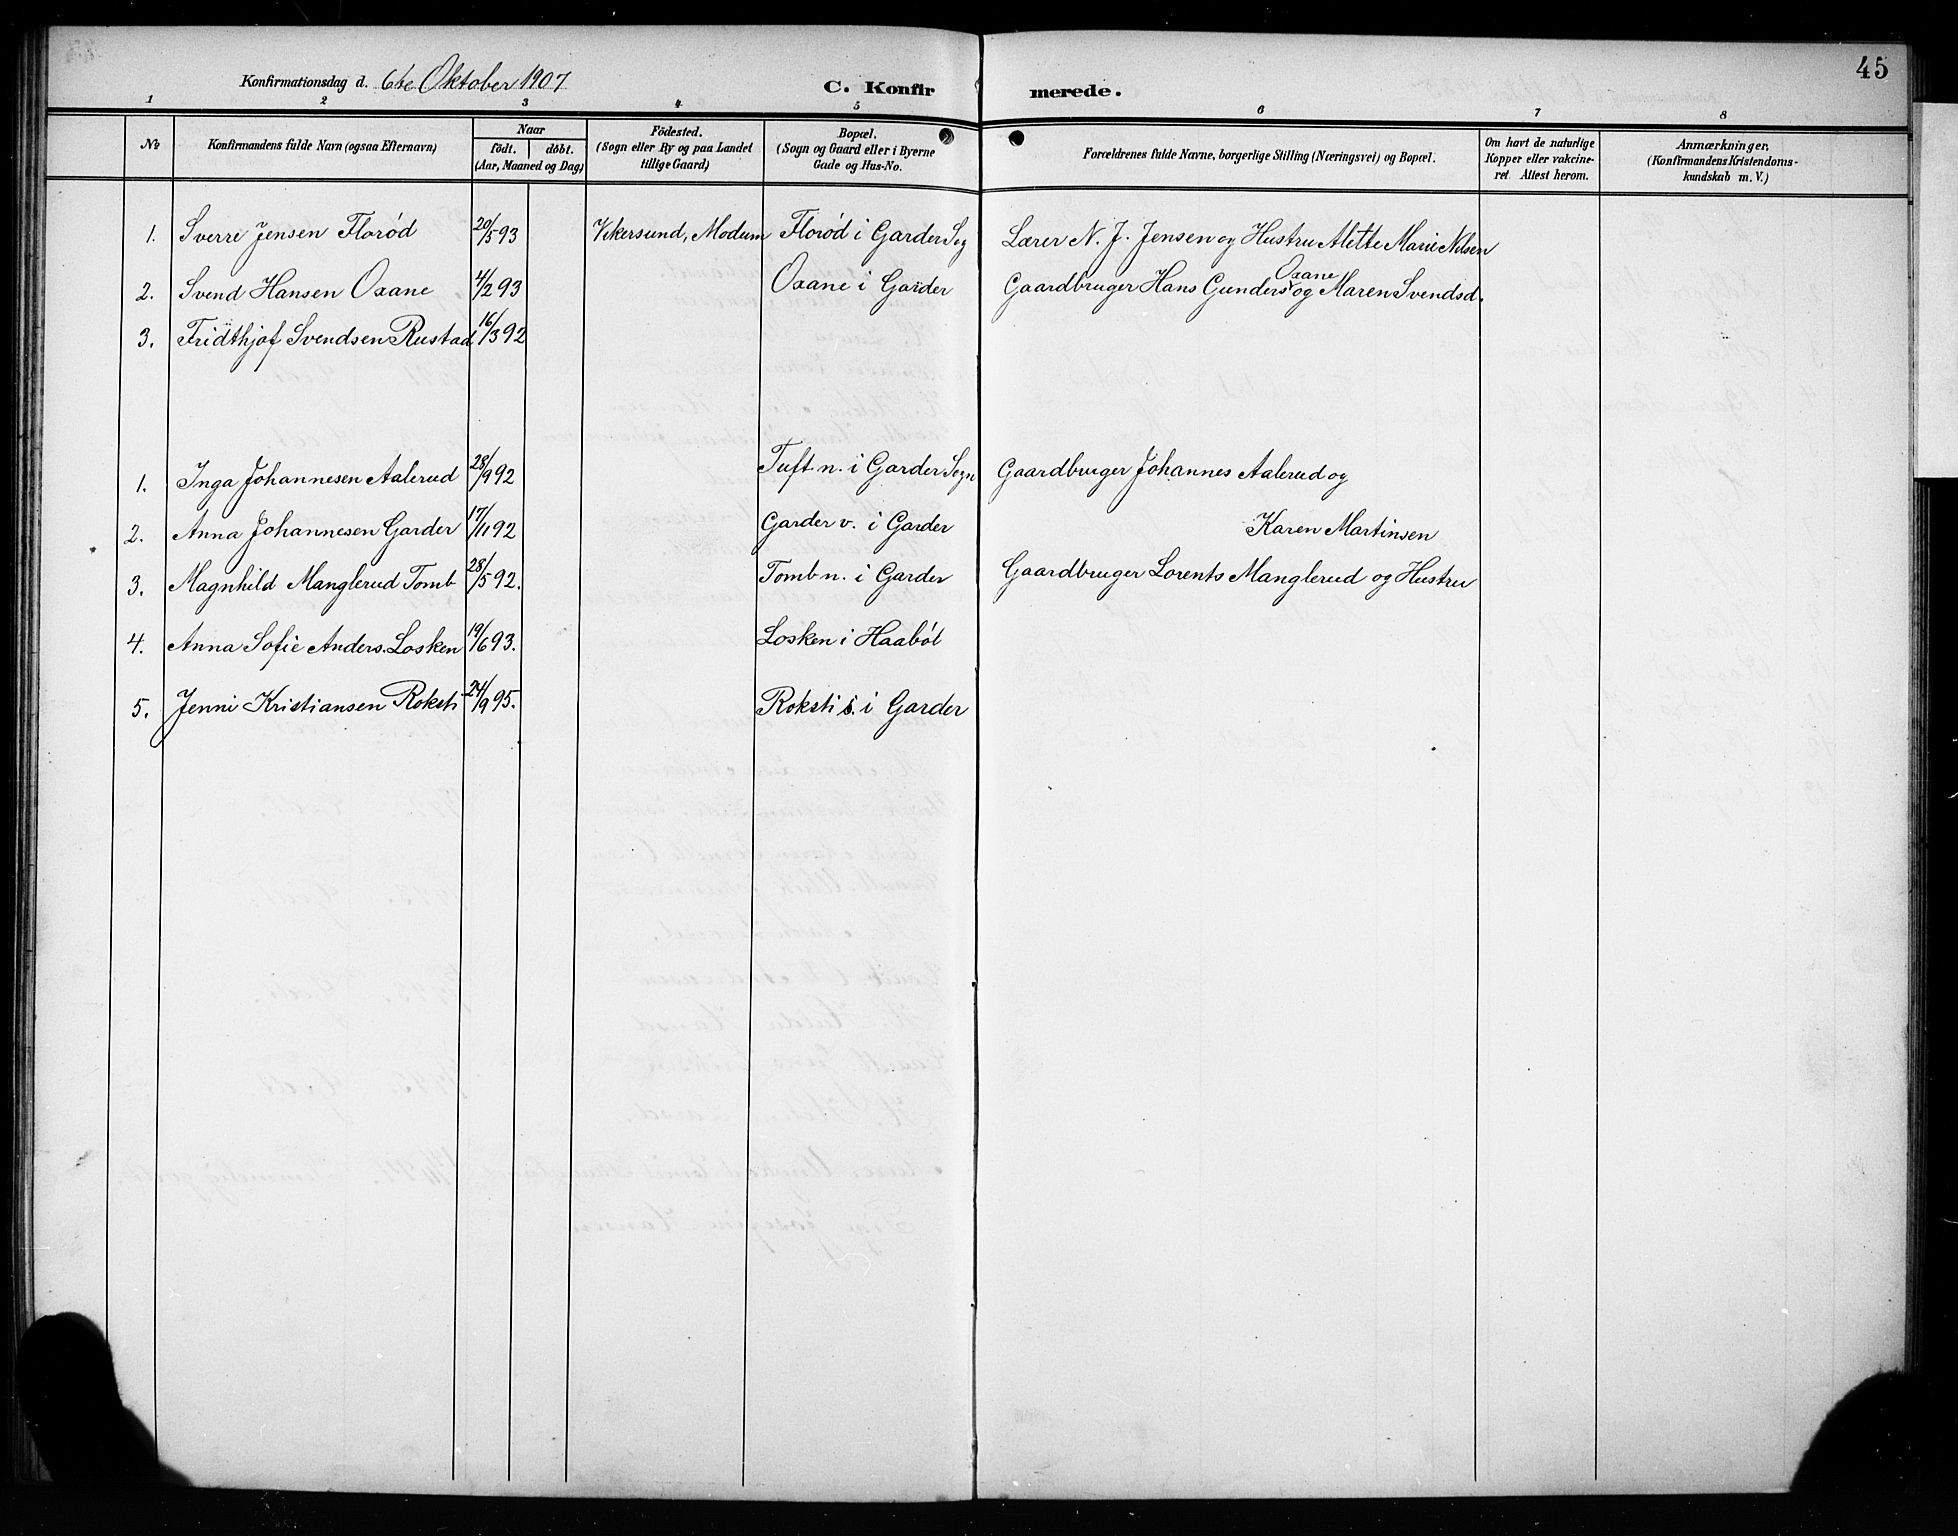 45
Konfirmationsdag d. 6te Oktober 1907 C. Konfirmerede.
1 2 3 4 5 6 7 8
No Konfirmandens fulde Navn (ogsaa Efternavn) Naar födt. döbt. (Aar, Maaned og Dag) Födested. (Sogn eller By og paa Landet tillige Gaard) Bopæl. (Sogn og Gaard eller i Byerne Gade og Hus-No. Forældrenes fulde Navne, borgerlige Stilling (Næringsvei) og Bopæl. Om havt de naturlige Kopper eller vakcineret. Attest herom. Anmærkninger, (Konfirmandens Kristendomskundskab m. V.)
1. Sverre Jensen Florød 20/5 93 Vikersund, Modum Florød i Garder Sog Lærer N. J. Jensen og Hustru Alette Marie Nilsen
2. Svend Hansen Oxane 4/2 93 Oxane i Garder Gaardbruger Hans Gunders Oxane og Maren Svendsd.
3. Fridthjof Svendsen Rustad 16/3 92
1. Inga Johannesen Aalerud 28/9 92 Tuft. n. i Garder Sogn Gaardbruger Johannes Aalerud og
2. Anna Johannesen Garder 17/11 92 Garder v. i Garder Karen Martinsen
3. Magnhild Manglerud Tomb 28/5 92. Tomb n. i Garder Gaardbruger Lorents Manglerud og Hustru
4. Anna Sofie Anders. Losken 19/6 93. Losken i Haabøl
5. Jenni Kristiansen Roksti 24/9 95. Roksti s. i Garder